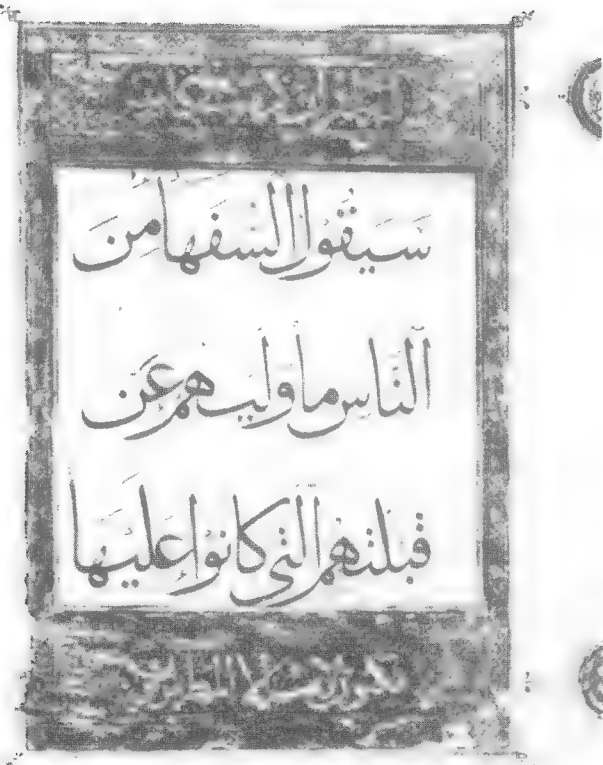 سَيَقُولُ السُّفَهَاءُ مِنَ
النَّاسِ مَا وَلَّيٰهُمْ عَنْ
قِبْلَتِهِمُ الَّتِي كَانُوا عَلَيْهَا